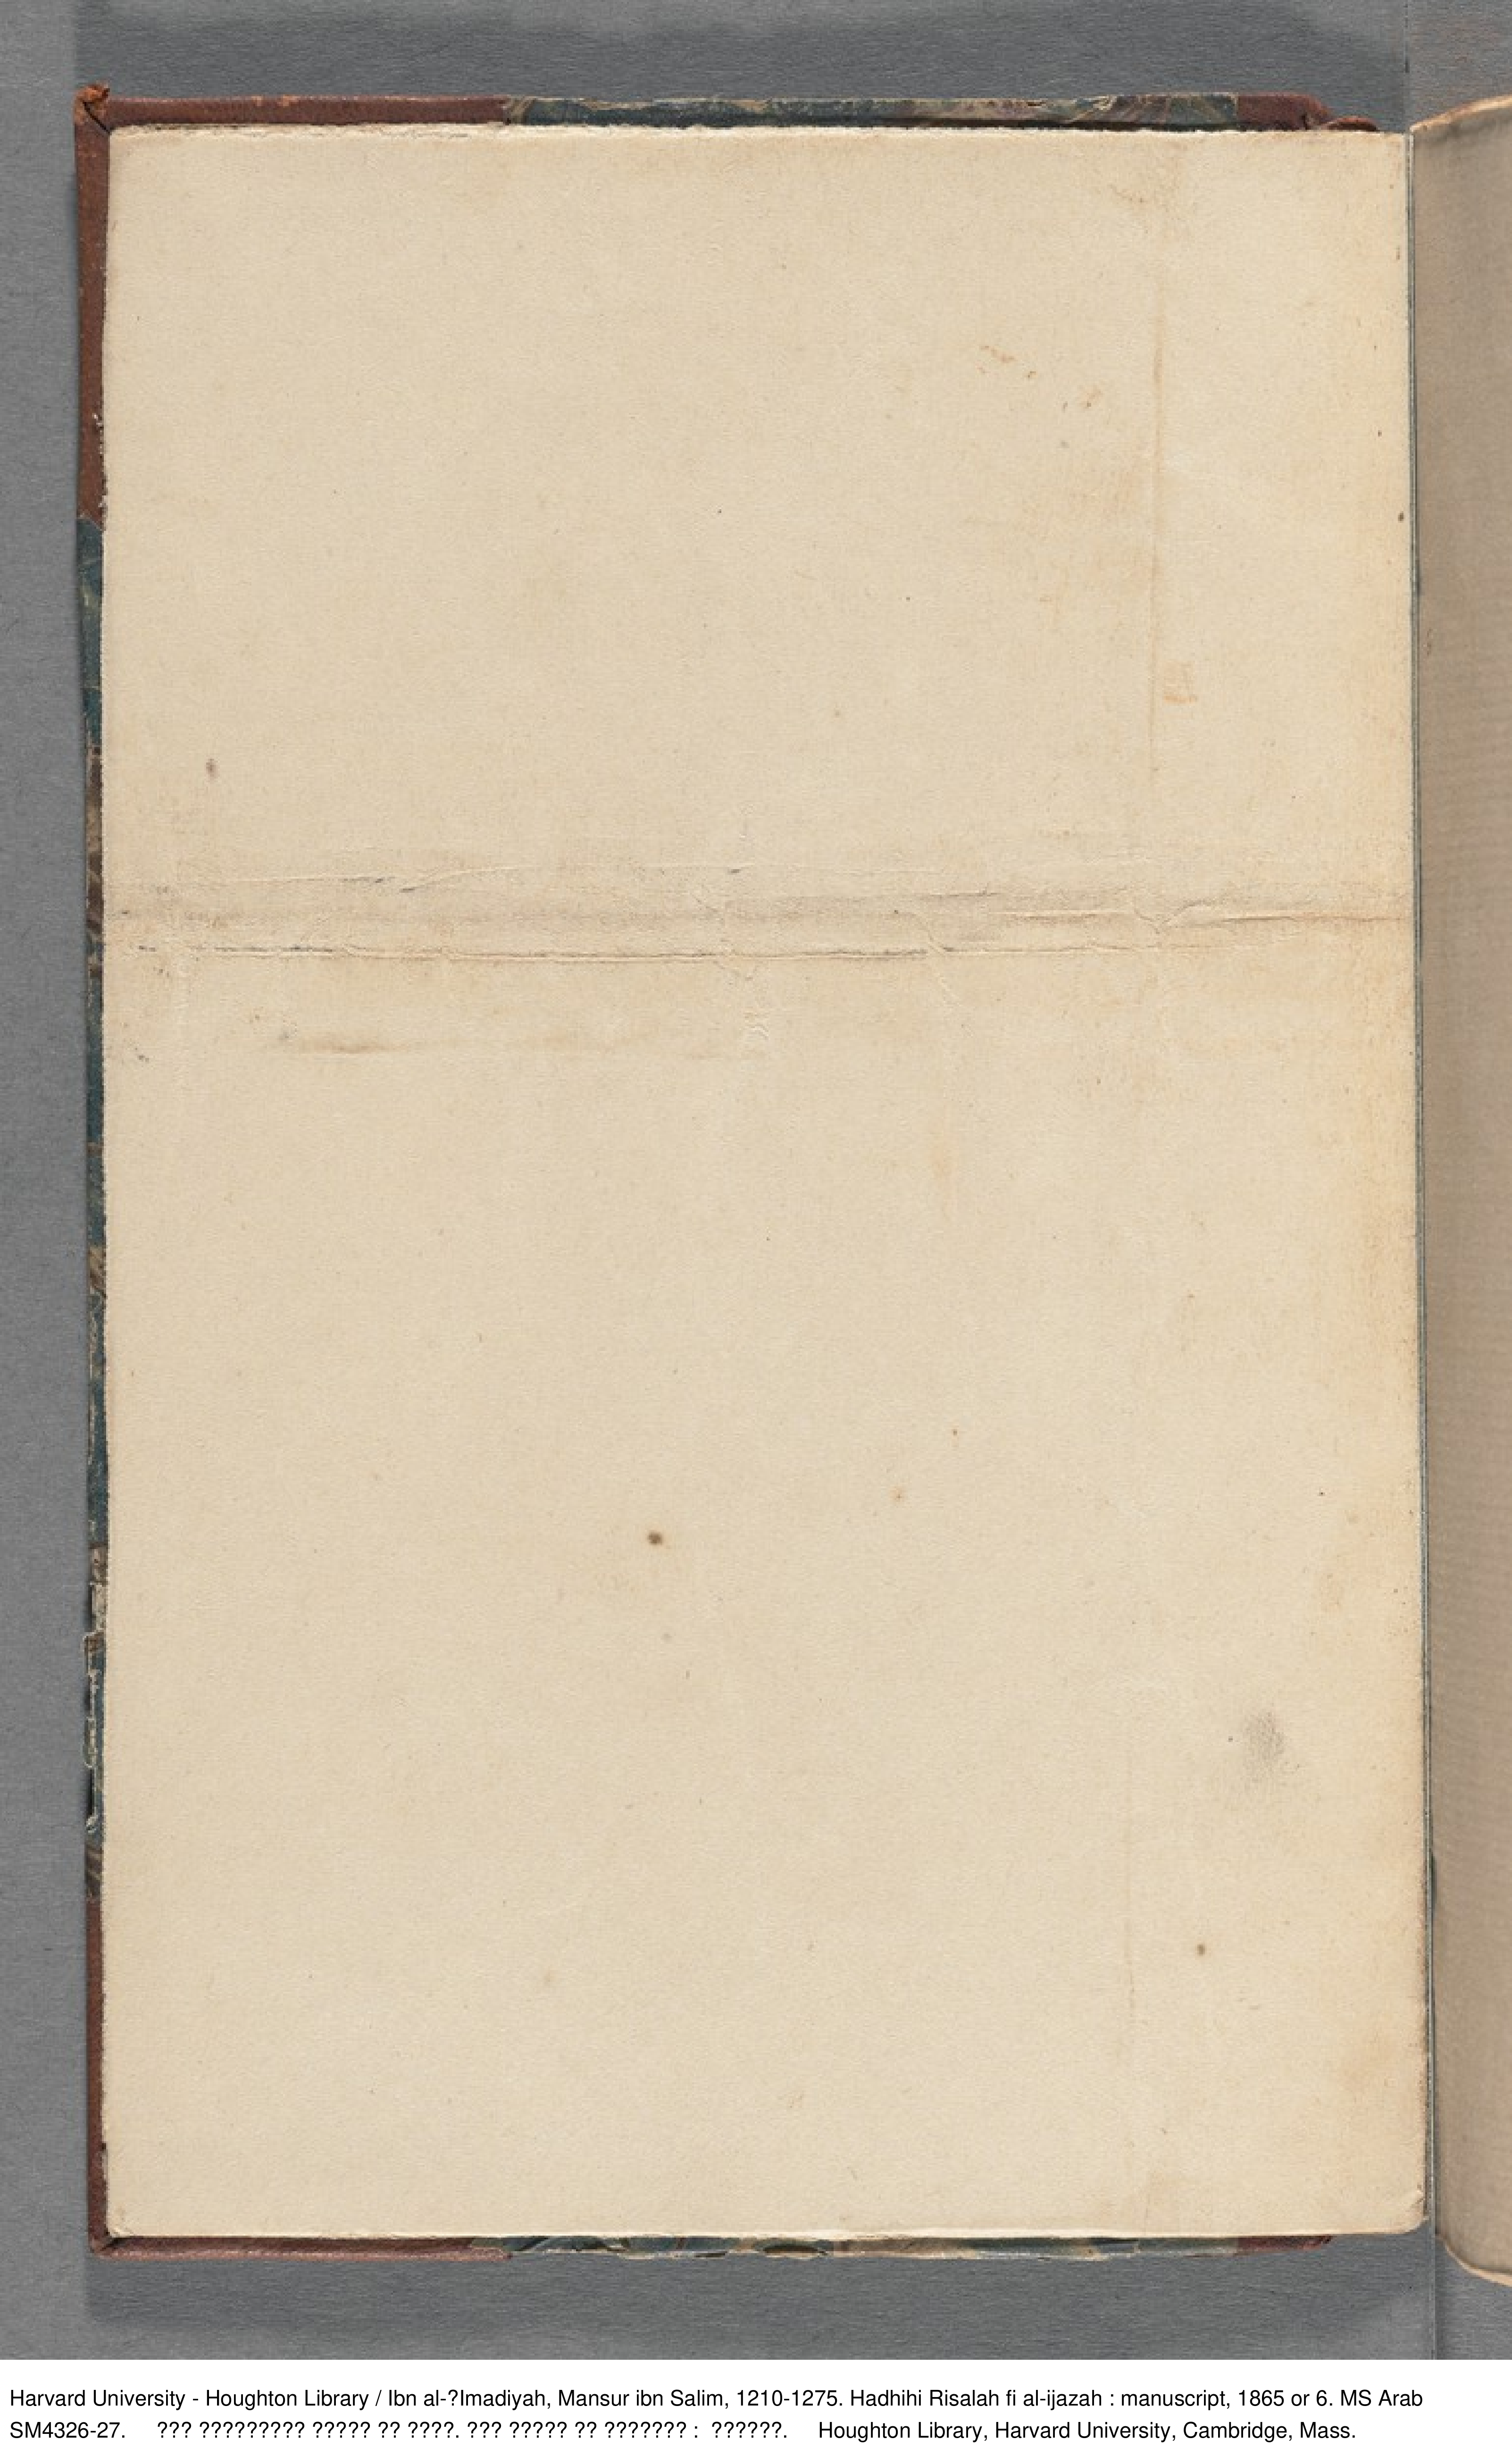 Harvard University - Houghton Library / Ibn al-?Imadiyah, Mansur ibn Salim, 1210-1275. Hadhihi Risalah fi al-ijazah : manuscript, 1865 or 6. MS Arab
SM4326-27. ??? ????????? ????? ?? ????. ??? ????? ?? ??????? : ??????. Houghton Library, Harvard University, Cambridge, Mass.